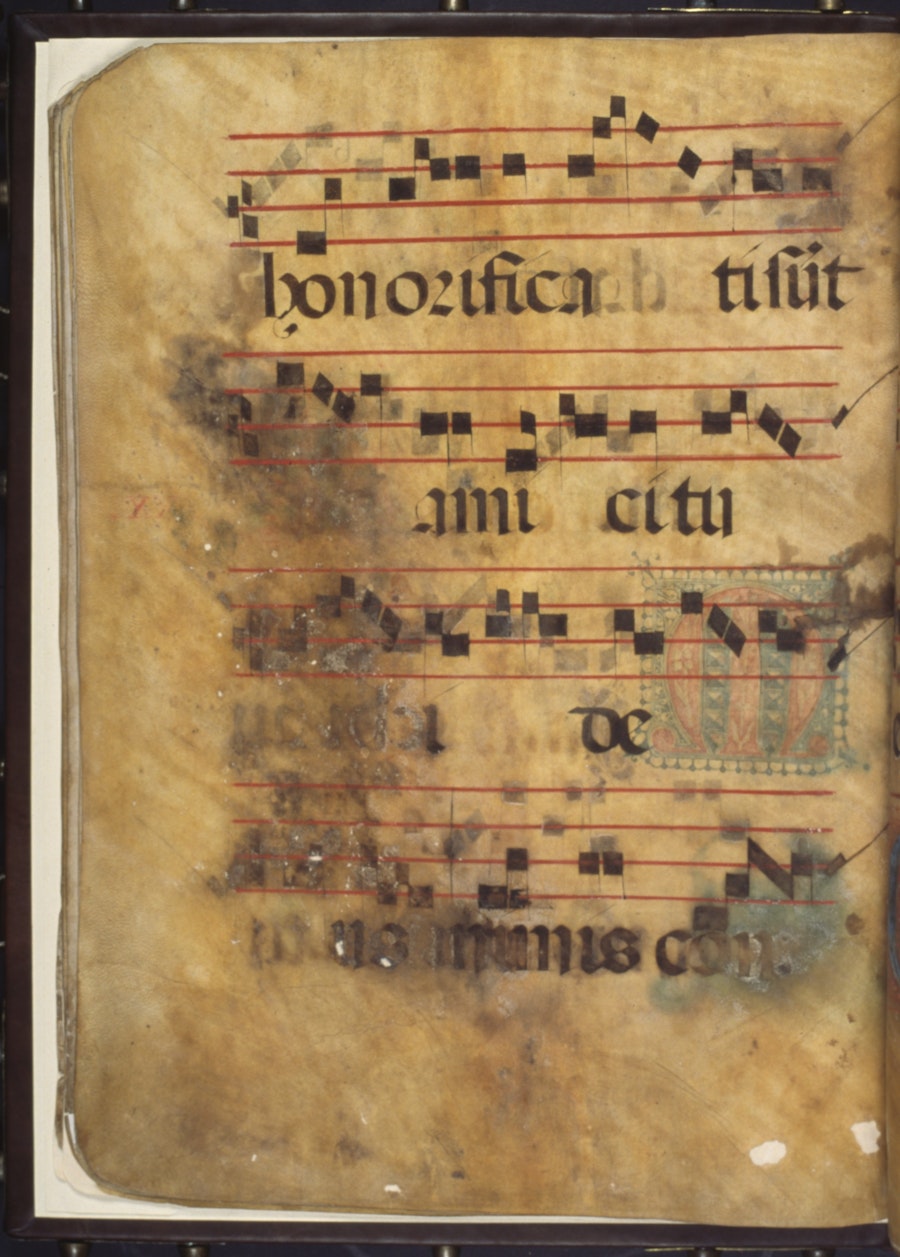 honorifica ti sūt
ami ci tu
i de
us nimis con